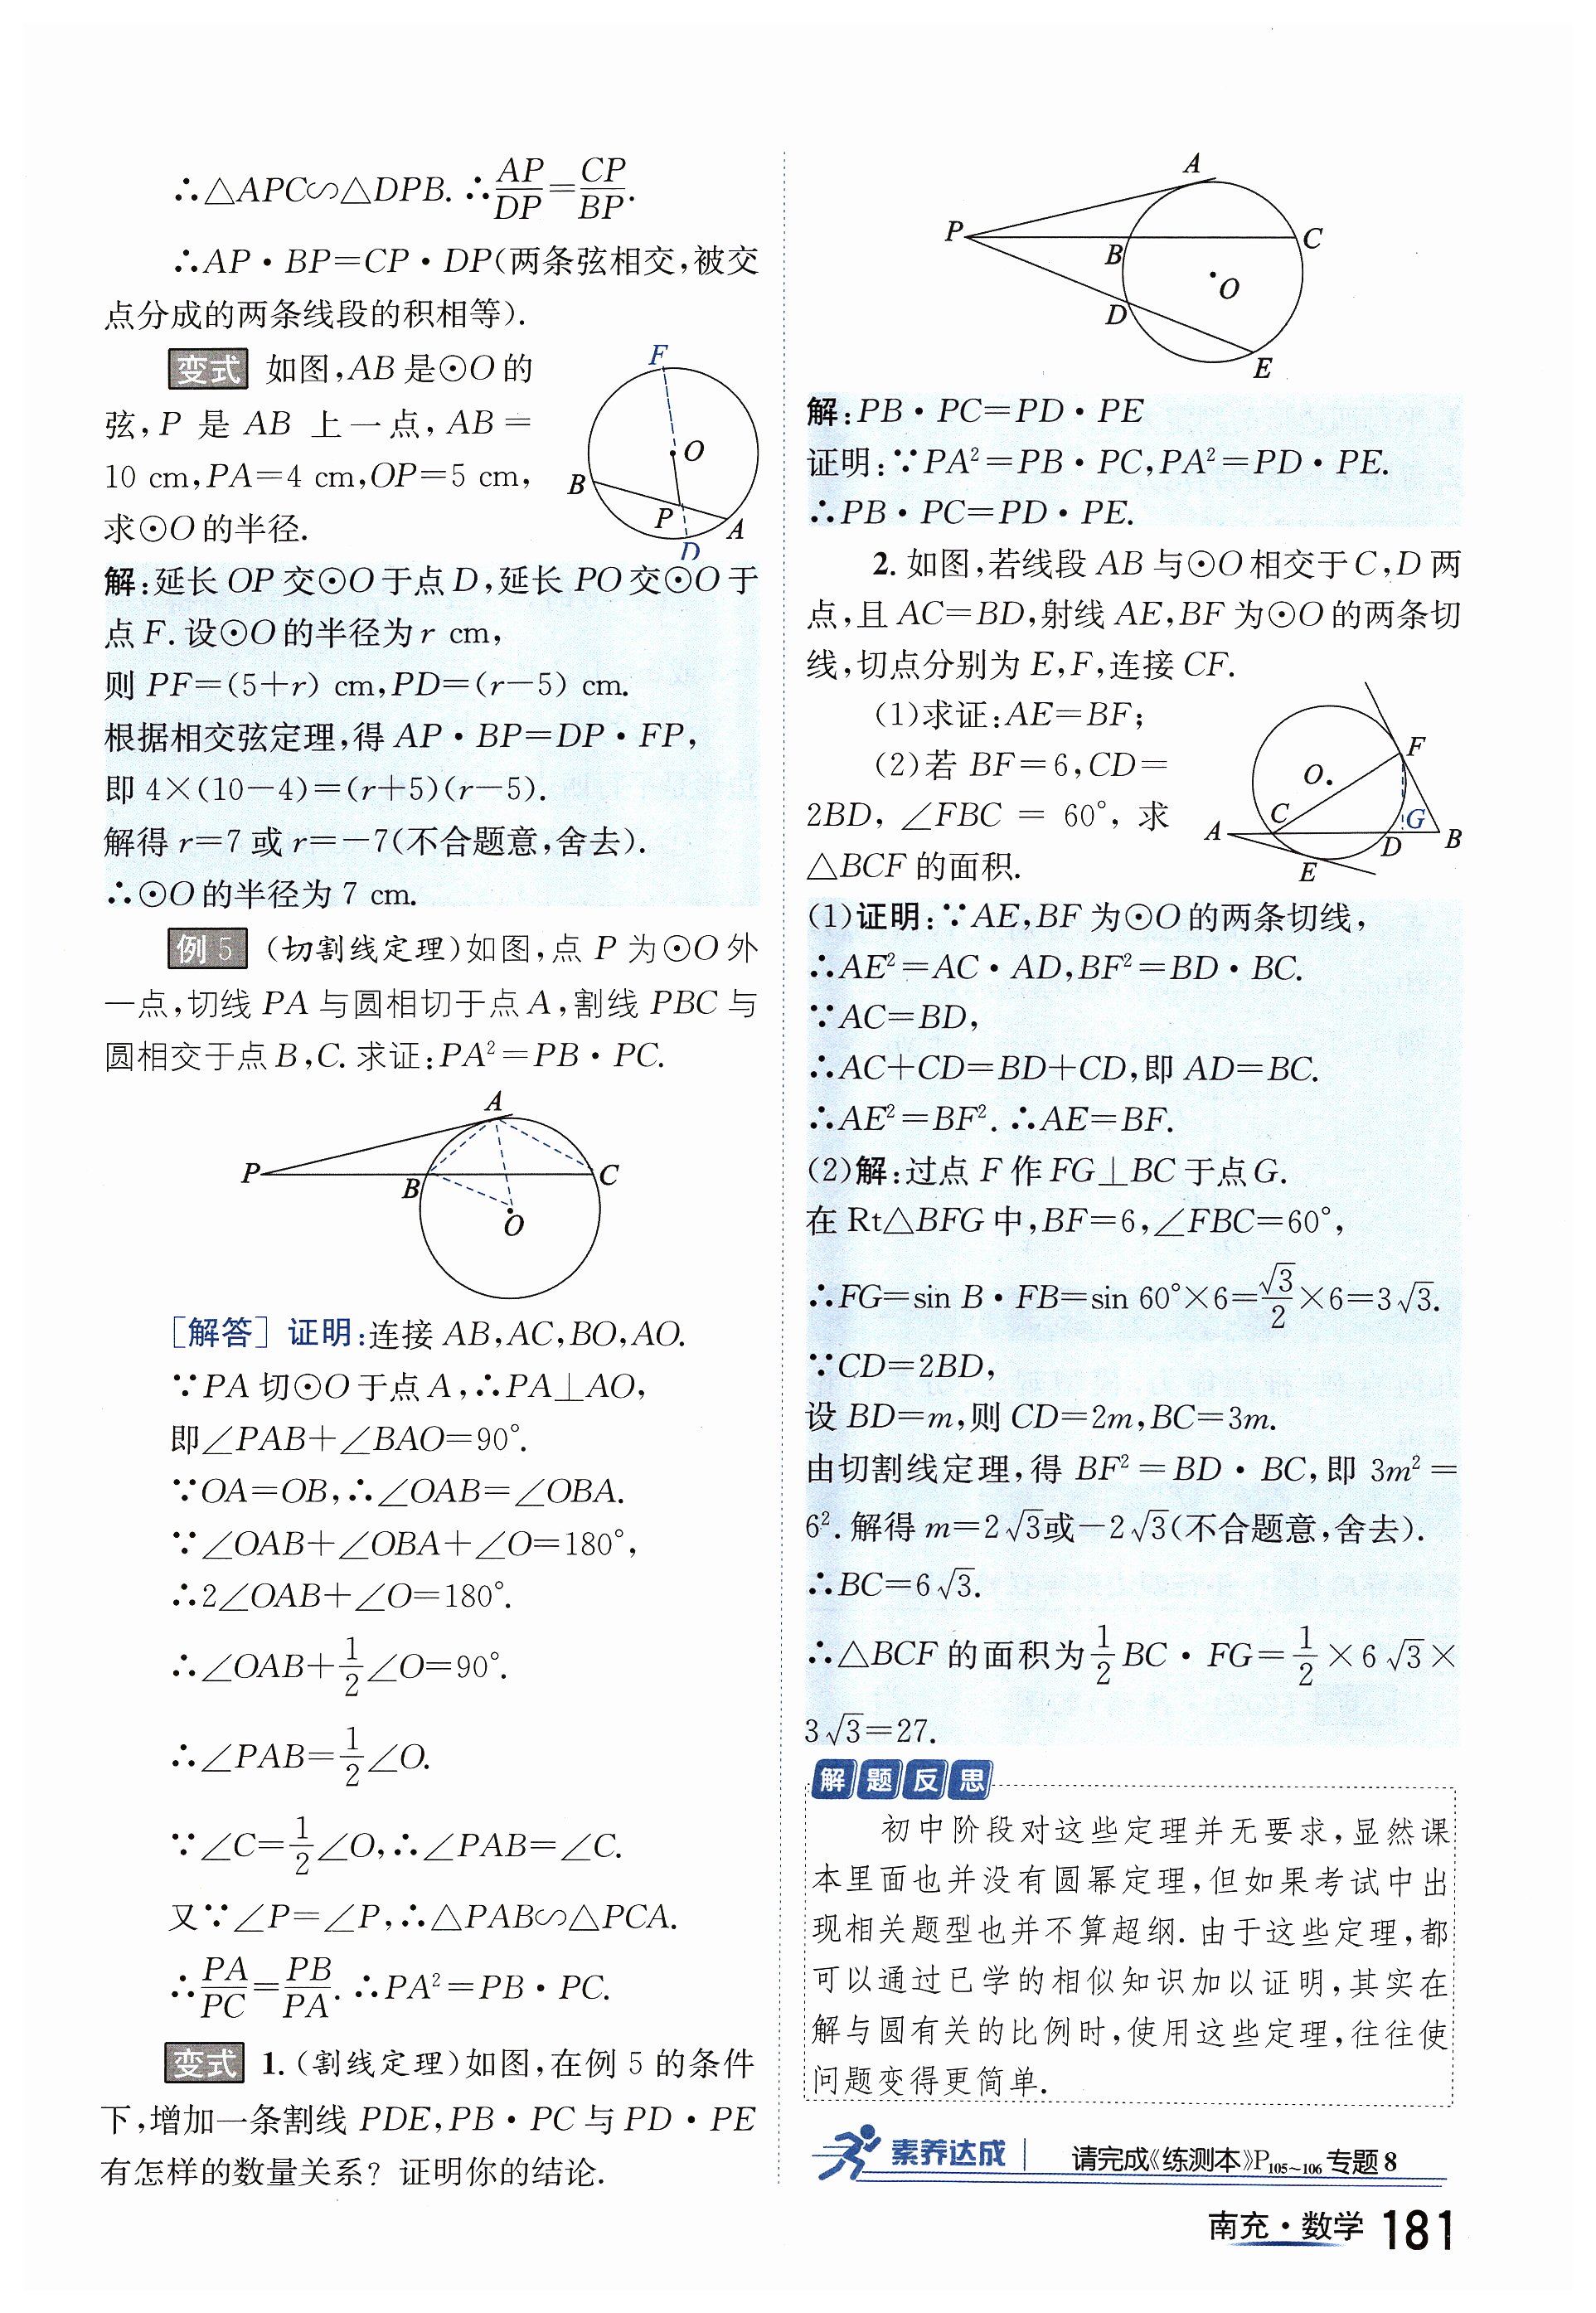 ∴△APC∽△DPB. ∴AP/DP=CP/BP.
∴AP·BP=CP·DP(两条弦相交,被交
点分成的两条线段的积相等).
变式 如图,AB是⊙O的
弦,P 是 AB 上一点,AB=
10 cm,PA=4 cm,OP=5 cm,
求⊙O的半径.
F
O
B
P
A
D
解:延长 OP 交⊙O于点D,延长 PO交⊙O于
点F.设⊙O的半径为r cm,
则 PF=(5+r) cm,PD=(r-5) cm.
根据相交弦定理,得 AP·BP=DP·FP,
即 4×(10-4)=(r+5)(r-5).
解得 r=7 或 r=-7(不合题意,舍去).
∴⊙O的半径为 7 cm.
例5 (切割线定理)如图,点 P 为⊙O外
一点,切线 PA 与圆相切于点A,割线 PBC 与
圆相交于点B,C.求证:PA²=PB·PC.
A
P
B
C
O
[解答] 证明:连接 AB,AC,BO,AO.
∵PA切⊙O于点A,∴PA⊥AO,
即∠PAB+∠BAO=90°.
∵OA=OB,∴∠OAB=∠OBA.
∵∠OAB+∠OBA+∠O=180°,
∴2∠OAB+∠O=180°.
∴∠OAB+1/2∠O=90°.
∴∠PAB=1/2∠O.
∵∠C=1/2∠O,∴∠PAB=∠C.
又∵∠P=∠P,∴△PAB∽△PCA.
∴PA/PC=PB/PA. ∴PA²=PB·PC.
变式 1.(割线定理)如图,在例 5 的条件
下,增加一条割线 PDE,PB·PC 与 PD·PE
有怎样的数量关系? 证明你的结论.
A
P
B
C
O
D
E
解:PB·PC=PD·PE
证明:∵PA²=PB·PC,PA²=PD·PE.
∴PB·PC=PD·PE.
2.如图,若线段 AB 与⊙O相交于C,D两
点,且 AC=BD,射线 AE,BF 为⊙O的两条切
线,切点分别为 E,F,连接 CF.
(1)求证:AE=BF;
(2)若 BF=6,CD=
2BD,∠FBC = 60°,求
△BCF的面积.
F
O
C
G
A
D
B
E
(1)证明:∵AE,BF为⊙O的两条切线,
∴AE²=AC·AD,BF²=BD·BC.
∵AC=BD,
∴AC+CD=BD+CD,即 AD=BC.
∴AE²=BF². ∴AE=BF.
(2)解:过点 F 作 FG⊥BC 于点G.
在 Rt△BFG 中,BF=6,∠FBC=60°,
∴FG=sin B·FB=sin 60°×6=√3/2×6=3√3.
∵CD=2BD,
设 BD=m,则 CD=2m,BC=3m.
由切割线定理,得 BF²=BD·BC,即 3m²=
6².解得 m=2√3或-2√3(不合题意,舍去).
∴BC=6√3.
∴△BCF 的面积为1/2BC·FG=1/2×6√3×
3√3=27.
解题反思
初中阶段对这些定理并无要求,显然课
本里面也并没有圆幂定理,但如果考试中出
现相关题型也并不算超纲.由于这些定理,都
可以通过已学的相似知识加以证明,其实在
解与圆有关的比例时,使用这些定理,往往使
问题变得更简单.
素养达成 请完成《练测本》P105~106专题8
南充·数学 181